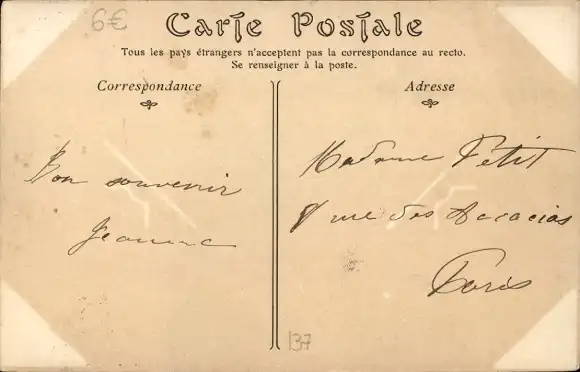 6€
Carte Postale
Tous les pays étrangers n'acceptent pas la correspondance au recto.
Se renseigner à la poste.
Correspondance
Adresse
Bon souvenir
Jeanne
Madame Petit
rue des Acacias
Paris
137